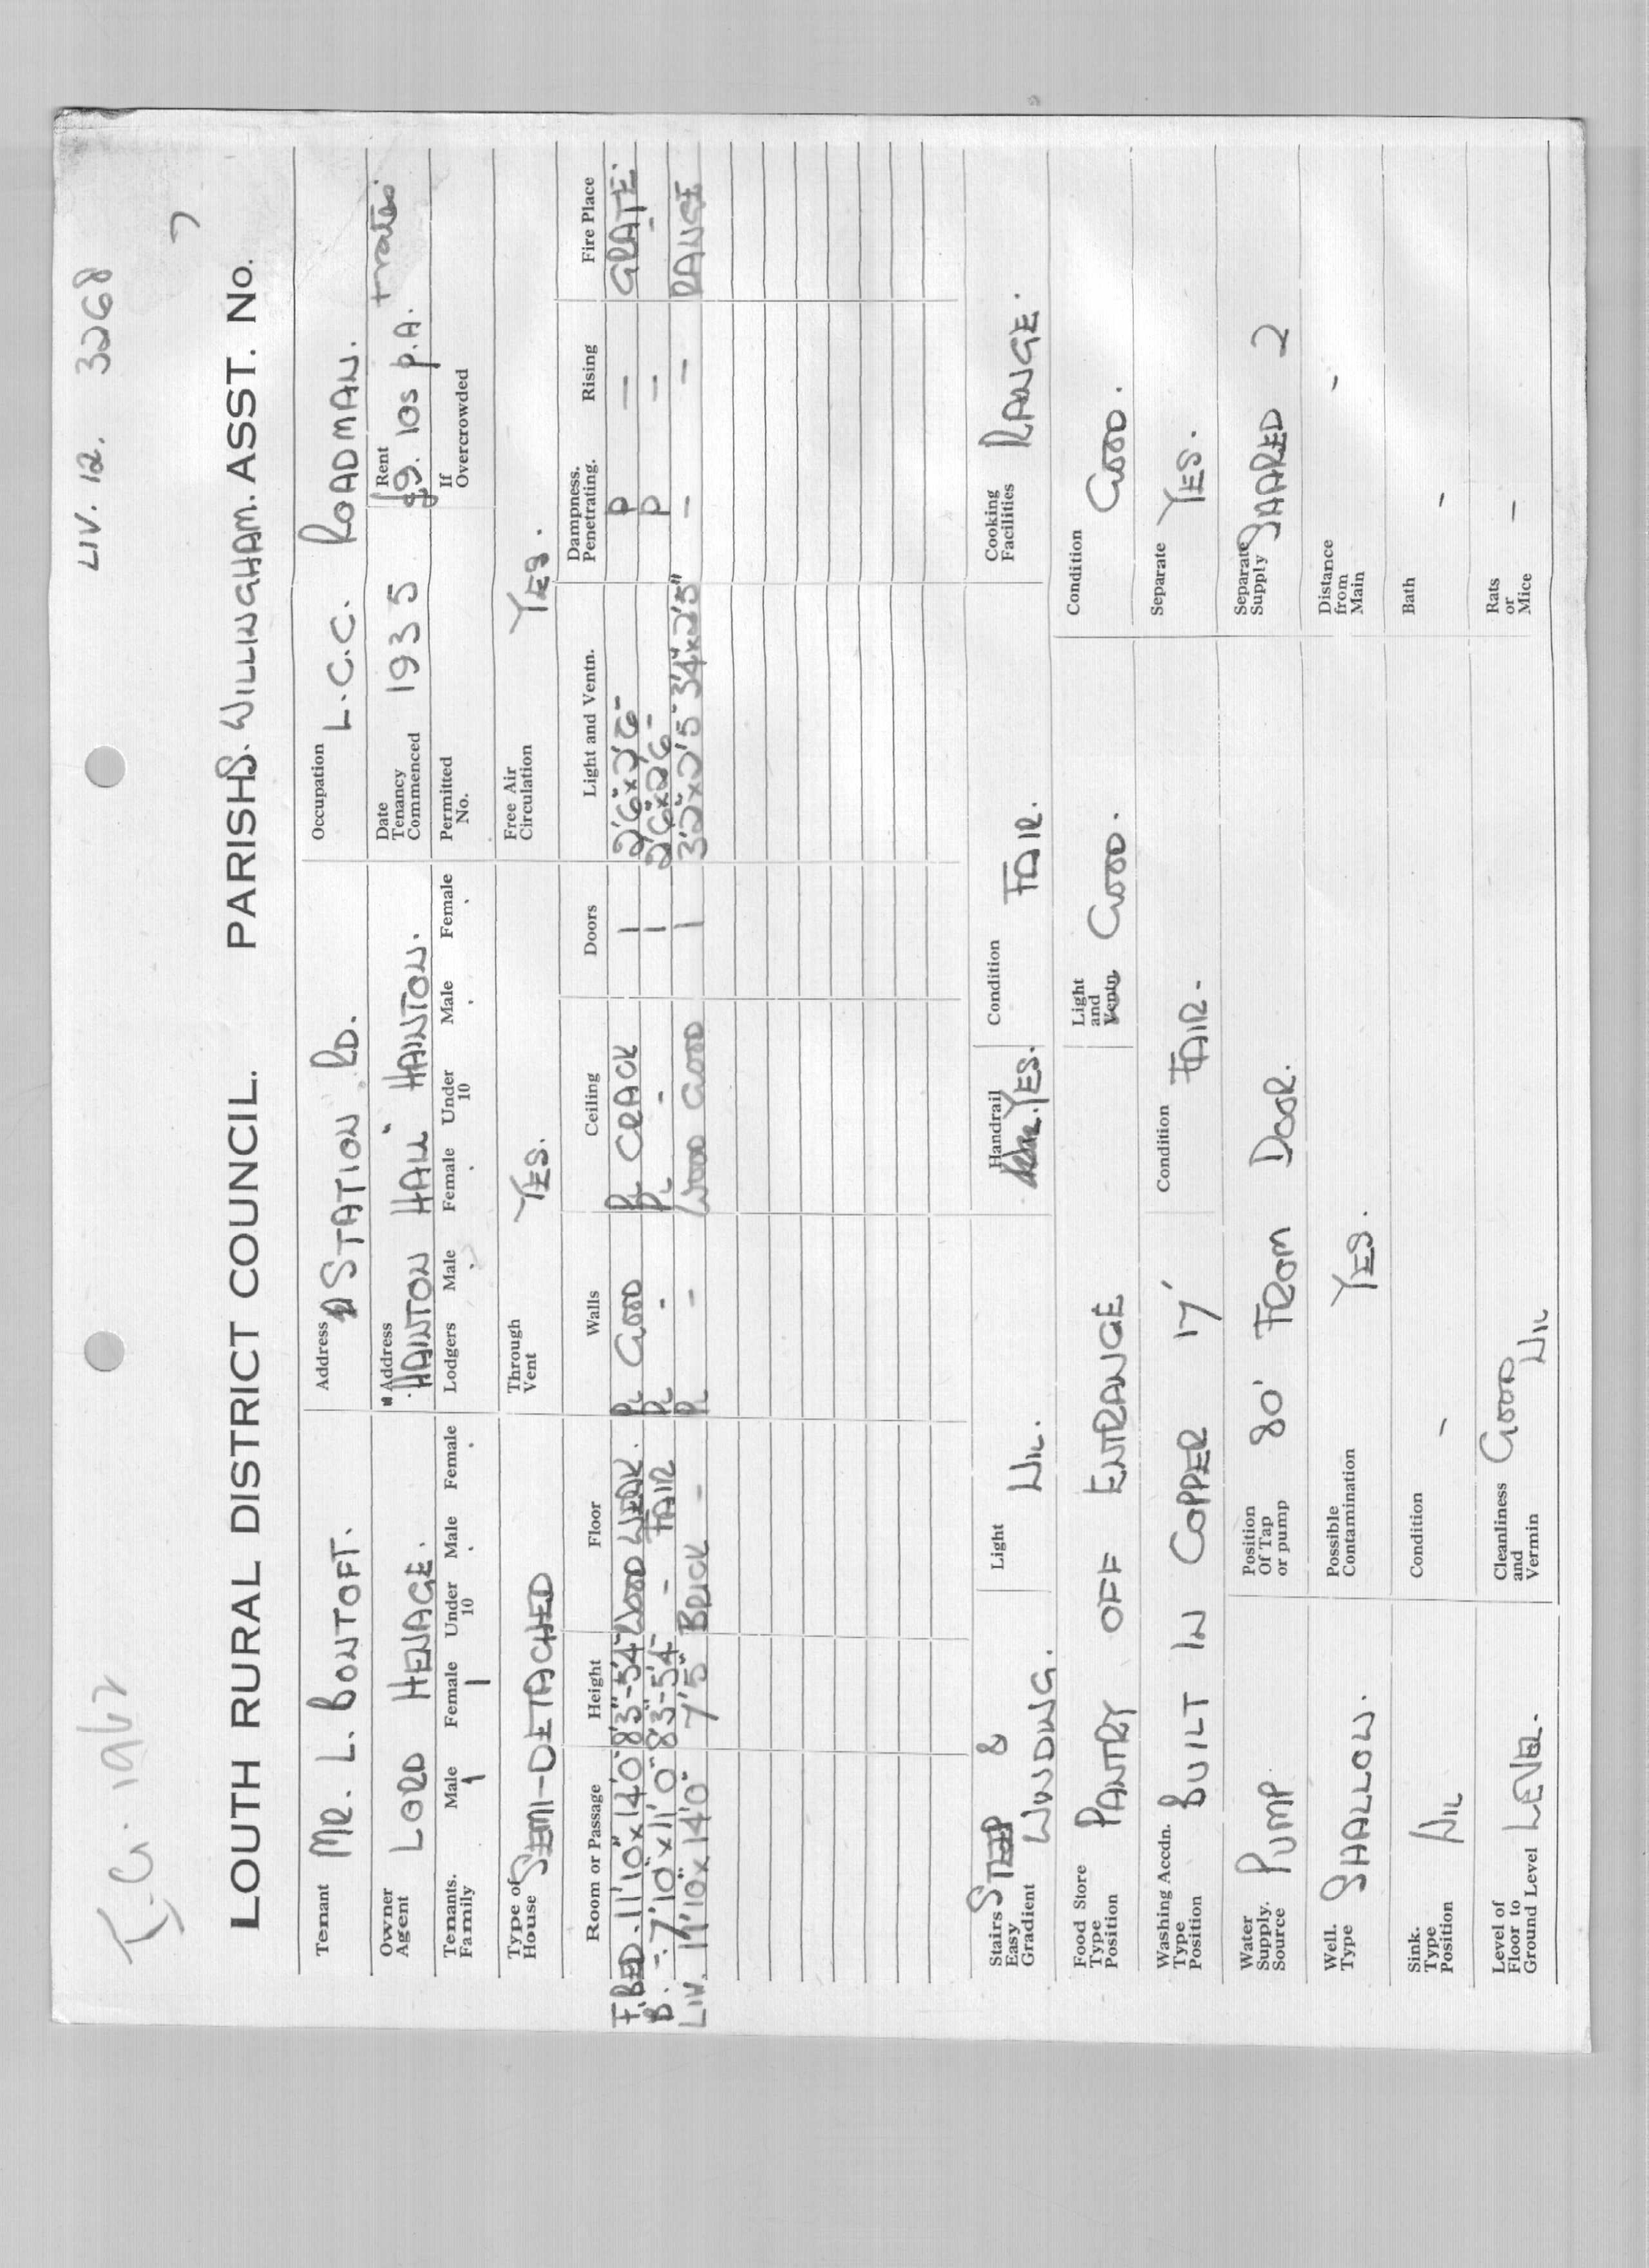 LIV. 12. 3268
7
LOUTH RURAL DISTRICT COUNCIL. PARISH S. WILLINGHAM. ASST. No.
Tenant MR. L. BONTOFT. Address STATION RD. Occupation L.C.C. ROADMAN.
Owner Agent LORD HENAGE. Address HAINTON HALL HAINTON. Date Tenancy Commenced 1935 Rent £9. 10s p.A. + rates.
Tenants. Family Male 1 Female 1 Under 10 Male Female Lodgers Male Female Under 10 Male Female Permitted No. If Overcrowded
Type of House SEMI-DETACHED Through Vent YES. Free Air Circulation YES.
Room or Passage Height Floor Walls Ceiling Doors Light and Ventn. Dampness. Penetrating. Rising Fire Place
F. BED. 11'10" x 14'0" 8'3"-5'4" WOOD WEAK. PL GOOD PL CRACK 1 2'6" x 2'6" P — GRATE.
B. - 7'10" x 11'0" 8'3-5'4" - FAIR PL - PL - 1 2'6" x 2'6" P — -
LIV. 11'10" x 14'0" 7'5" BRICK - PL - WOOD GOOD 1 3'2" x 2'5" 3'4" x 2'5" — — RANGE
Stairs Easy Gradient STEEP & WINDING. Light NIL. Handrail YES. Condition FAIR. Cooking Facilities RANGE.
Food Store Type Position PANTRY OFF ENTRANCE Light and Ventn GOOD. Condition GOOD.
Washing Accdn. Type Position BUILT IN COPPER 17' Condition FAIR. Separate YES.
Water Supply. Source PUMP. Position Of Tap or pump 80' FROM DOOR. Separate Supply SHARED 2
Well. Type SHALLOW. Possible Contamination YES. Distance from Main -
Sink. Type Position NIL Condition - Bath -
Level of Floor to Ground Level LEVEL. Cleanliness and Vermin GOOD NIL Rats or Mice -